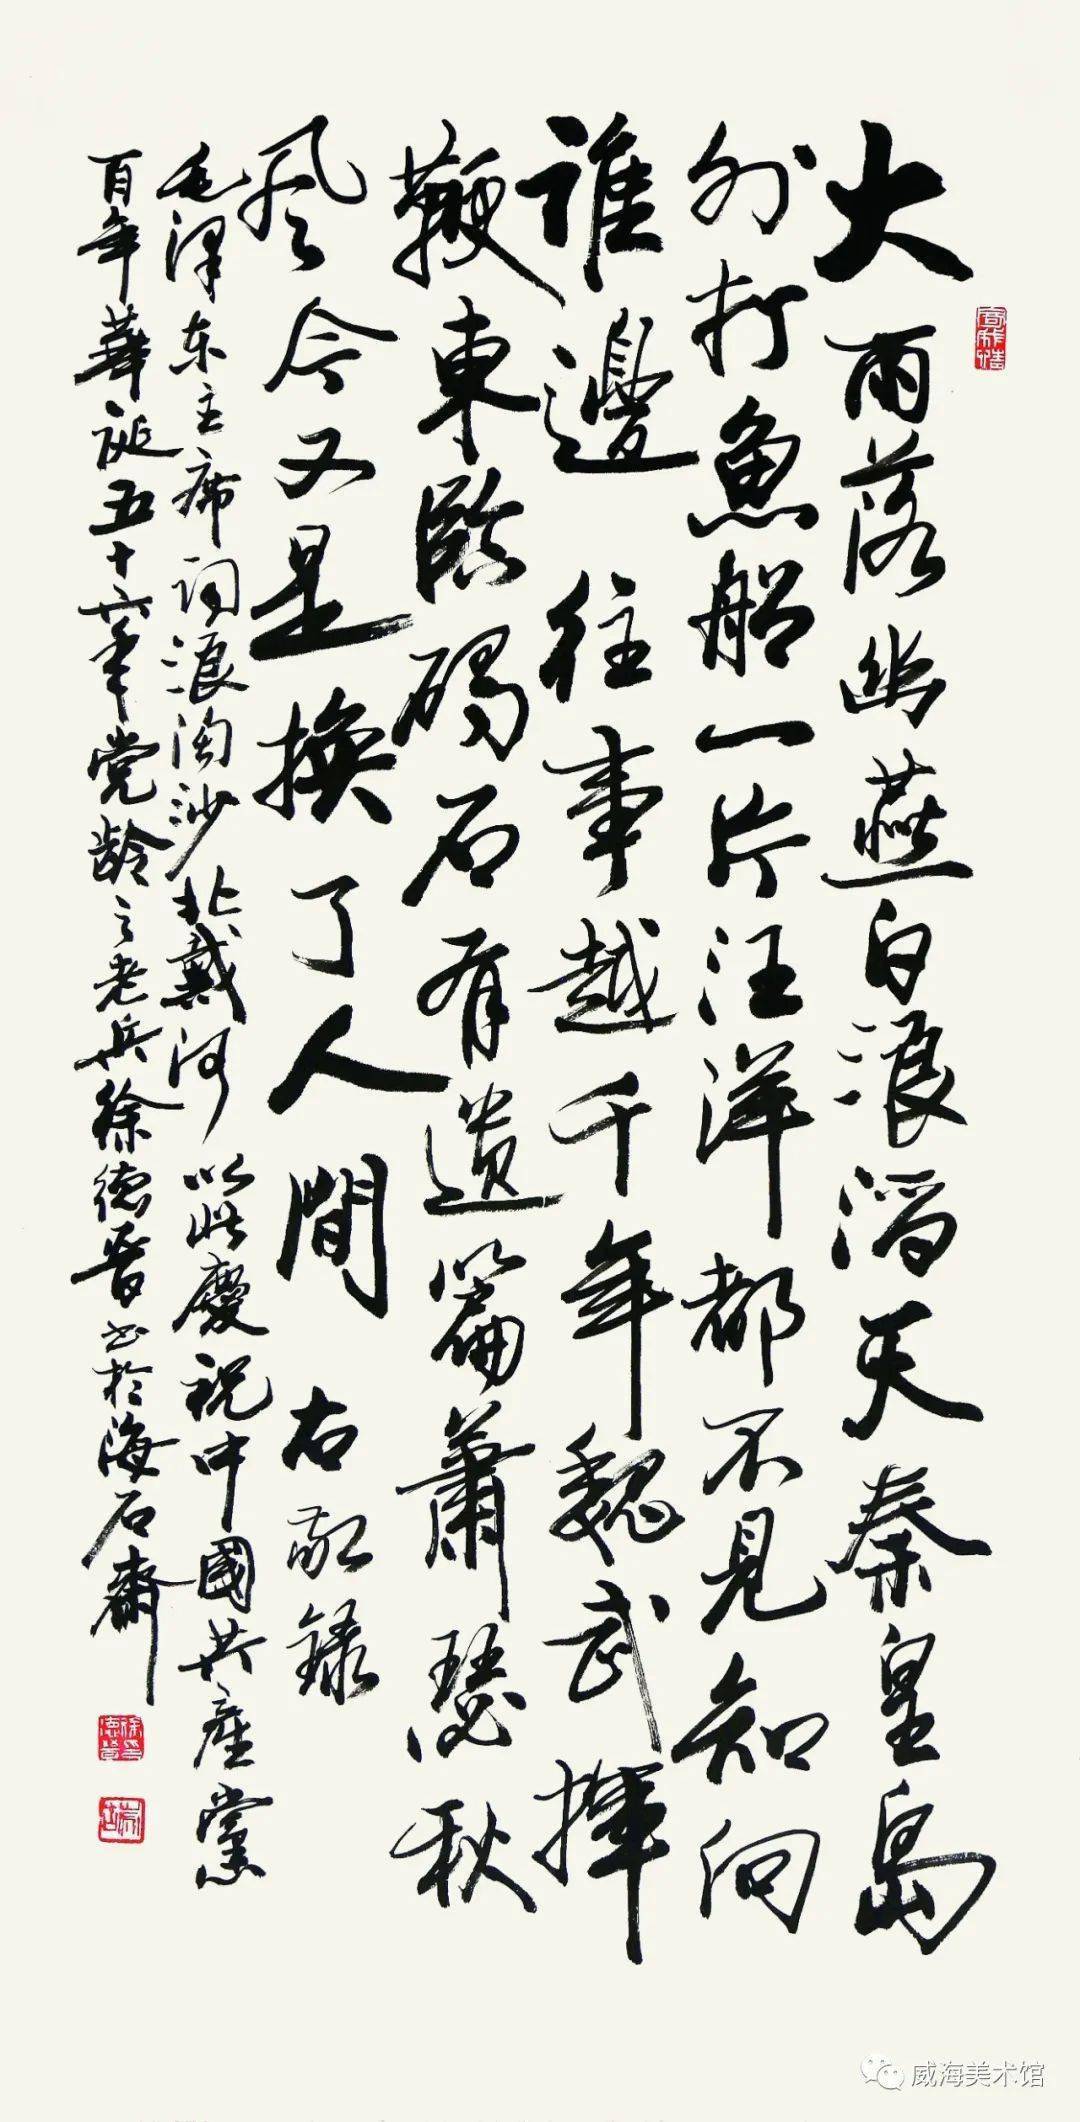 大雨落幽燕白浪滔天秦皇島
外打魚船一片汪洋都不見知向
誰邊 往事越千年魏武揮
鞭東臨碣石有遺篇蕭瑟秋
風今又是換了人間 右敬録
毛泽东主席词浪淘沙北戴河 以此慶祝中國共產黨
百年華诞五十六年党龄之老兵徐德晋书於海石齋
威海美术馆